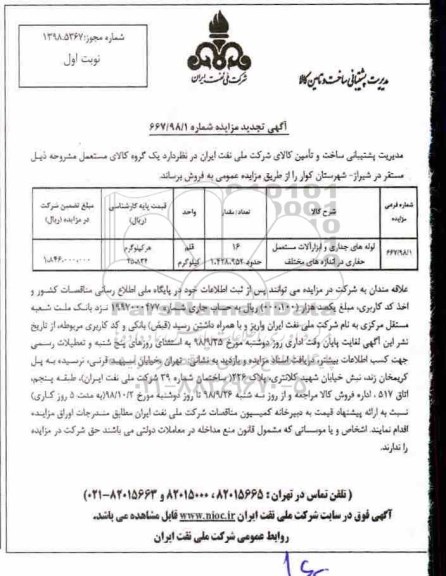 شماره مجوز: ۱۳۹۸.۵۳۶۷
نوبت اول
شرکت ملی نفت ایران
مدیریت پشتیبانی ساخت و تامین کالا
آگهی تجدید مزایده شماره ۶۶۷/۹۸/۱
مدیریت پشتیبانی ساخت و تأمین کالای شرکت ملی نفت ایران در نظردارد یک گروه کالای مستعمل مشروحه ذیل
مستقر در شیراز- شهرستان کوار را از طریق مزایده عمومی به فروش برساند.
شماره فرعی مزایده
شرح کالا
تعداد/مقدار
واحد
قیمت پایه کارشناسی (ریال)
مبلغ تضمین شرکت در مزایده (ریال)
۶۶۷/۹۸/۱
لوله های جداری و ابزارآلات مستعمل حفاری در اندازه های مختلف
۱۶
حدود ۱،۴۲۸،۹۵۲
قلم
کیلوگرم
هرکیلوگرم
علاقه مندان به شرکت در مزایده می توانند پس از ثبت اطلاعات خود در پایگاه ملی اطلاع رسانی مناقصات کشور و
اخذ کد کاربری، مبلغ یکصد هزار ریال به حساب جاری شماره نزد بانک ملت شعبه
مستقل مرکزی به نام شرکت ملی نفت ایران واریز و با همراه داشتن رسید (فیش) بانکی و کد کاربری مربوطه، از تاریخ
نشر این آگهی لغایت پایان وقت اداری روز دوشنبه مورخ ۹۸/۹/۲۵ به استثنای روزهای پنج شنبه و تعطیلات رسمی
جهت کسب اطلاعات بیشتر، دریافت اسناد مزایده و بازدید به نشانی: تهران، خیابان سپهبد قرنی، نرسیده به پل
کریمخان زند، نبش خیابان شهید کلانتری، پلاک ساختمان شماره ۳۹ شرکت ملی نفت ایران، طبقه پنجم،
اتاق ۵۱۷ ، اداره فروش کالا مراجعه و از روز سه شنبه ۹۸/۹/۲۶ تا روز دوشنبه مورخ (به مدت ۵ روز کاری)
نسبت به ارائه پیشنهاد قیمت به دبیرخانه کمیسیون مناقصات شرکت ملی نفت ایران مطابق مندرجات اوراق مزایده
اقدام نمایند. اشخاص و یا موسساتی که مشمول قانون منع مداخله در معاملات دولتی می باشند حق شرکت در مزایده
را ندارند.
( تلفن تماس در تهران : ۸۲۰۱۵۶۶۵، ۸۲۰۱۵۰۰۰ و ۸۲۰۱۵۶۶۳-۰۲۱)
آگهی فوق در سایت شرکت ملی نفت ایران www.nioc.ir قابل مشاهده می باشد.
روابط عمومی شرکت ملی نفت ایران